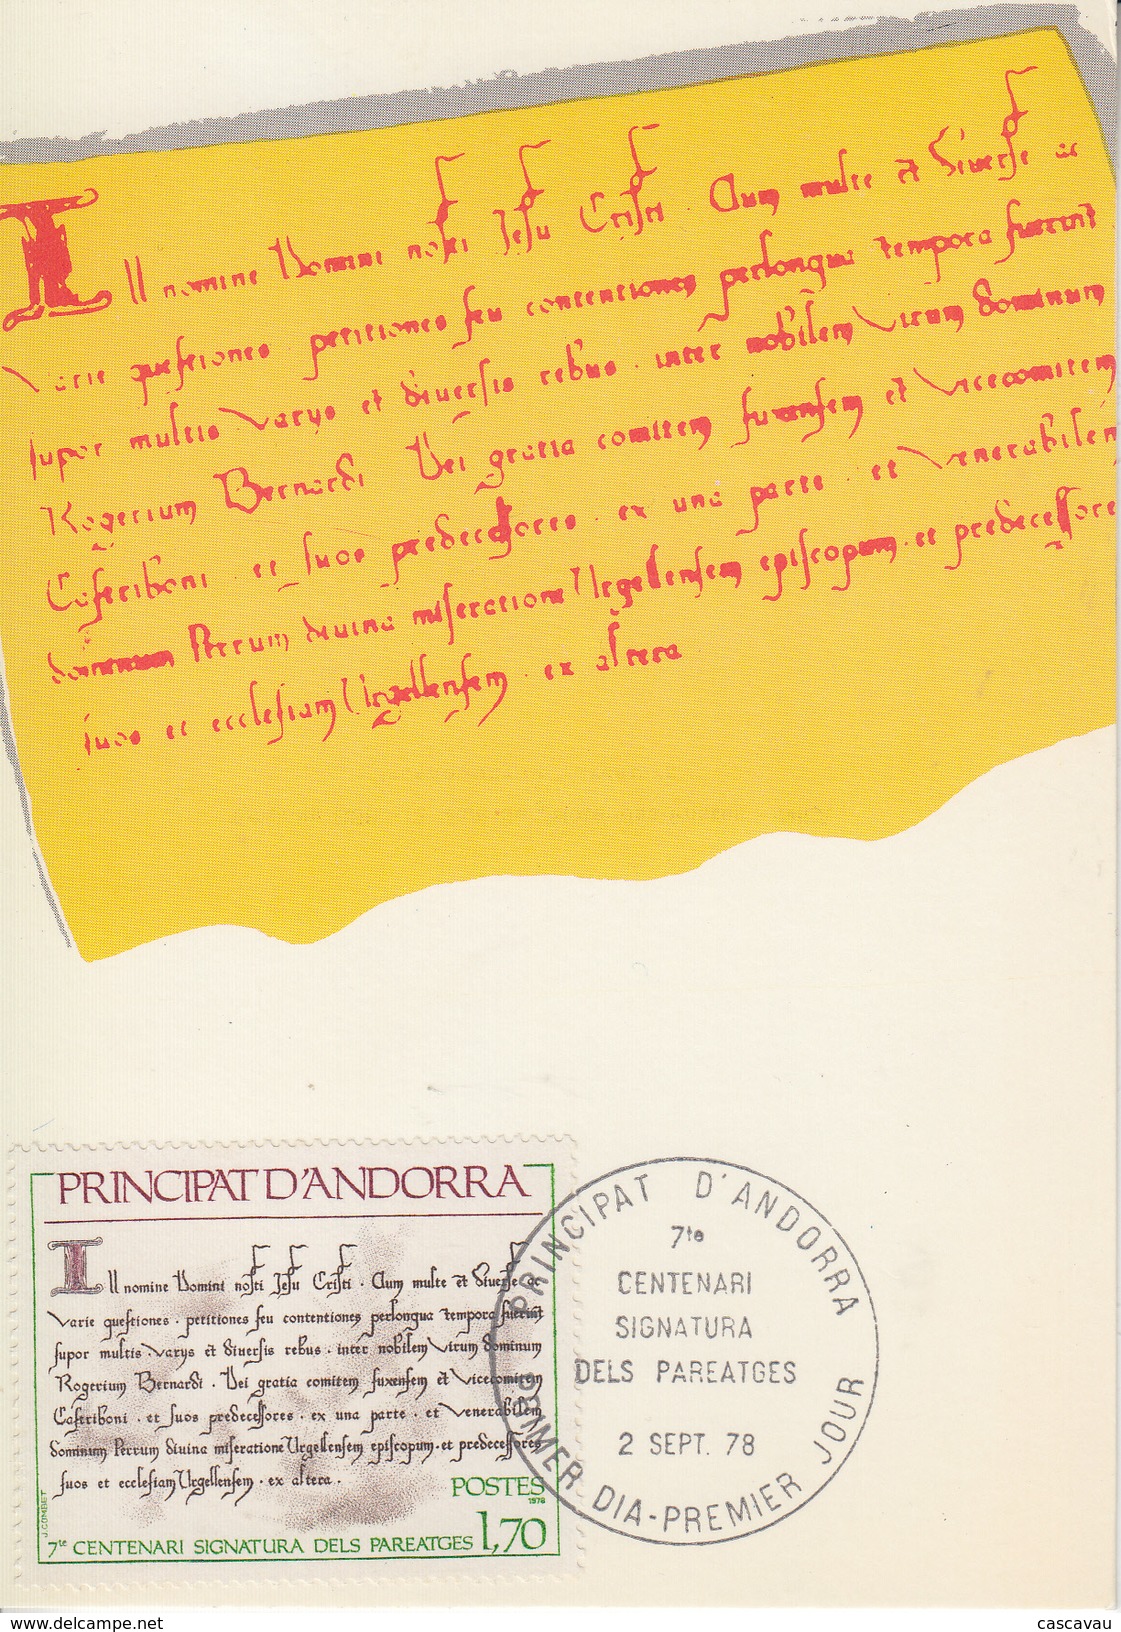 Ill nomine Domini nostri Jesu Cristi . Cum multe et diverse ac
varie questiones petitiones seu contentiones perlongua tempora fuerint
supor multis varys et diversis rebus . inter nobilem virum dominum
Rogerium Bernardi Dei gratia comitem fuxensem et vicecomitem
Castriboni . et suos predecessores . ex una parte . et venerabilem
dominum Petrum divina miseratione Urgellensem episcopum . et predecessore
suos et ecclesiam Urgellensem . ex altera
PRINCIPAT D'ANDORRA
Ill nomine Domini nostri Jesu Cristi . Cum multe et diverse ac
varie questiones . petitiones seu contentiones perlongua tempora fuerint
supor multis . varys et diversis rebus . inter nobilem virum dominum
Rogerium Bernardi . Dei gratia comitem fuxensem et vicecomitem
Castriboni . et suos predecessores . ex una parte . et venerabilem
dominum Petrum divina miseratione Urgellensem episcopum . et predecessores
suos et ecclesiam Urgellensem . ex altera .
POSTES
1978
1,70
7te CENTENARI SIGNATURA DELS PAREATGES
J. COMBET
PRINCIPAT D'ANDORRA
7te
CENTENARI
SIGNATURA
DELS PAREATGES
2 SEPT. 78
PRIMER DIA-PREMIER JOUR
www.delcampe.net
cascavau